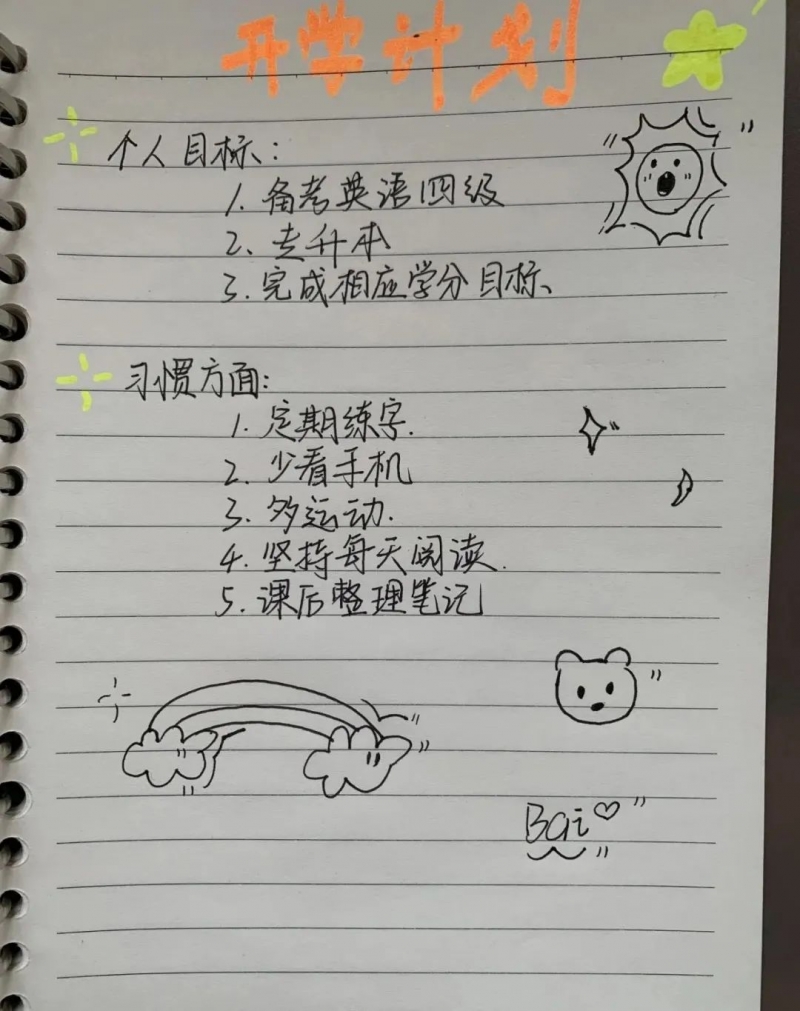 开学计划
个人目标:
1. 备考英语四级
2. 专升本
3. 完成相应学分目标、
习惯方面:
1. 定期练字.
2. 少看手机
3. 多运动.
4. 坚持每天阅读.
5. 课后整理笔记
Bai♡